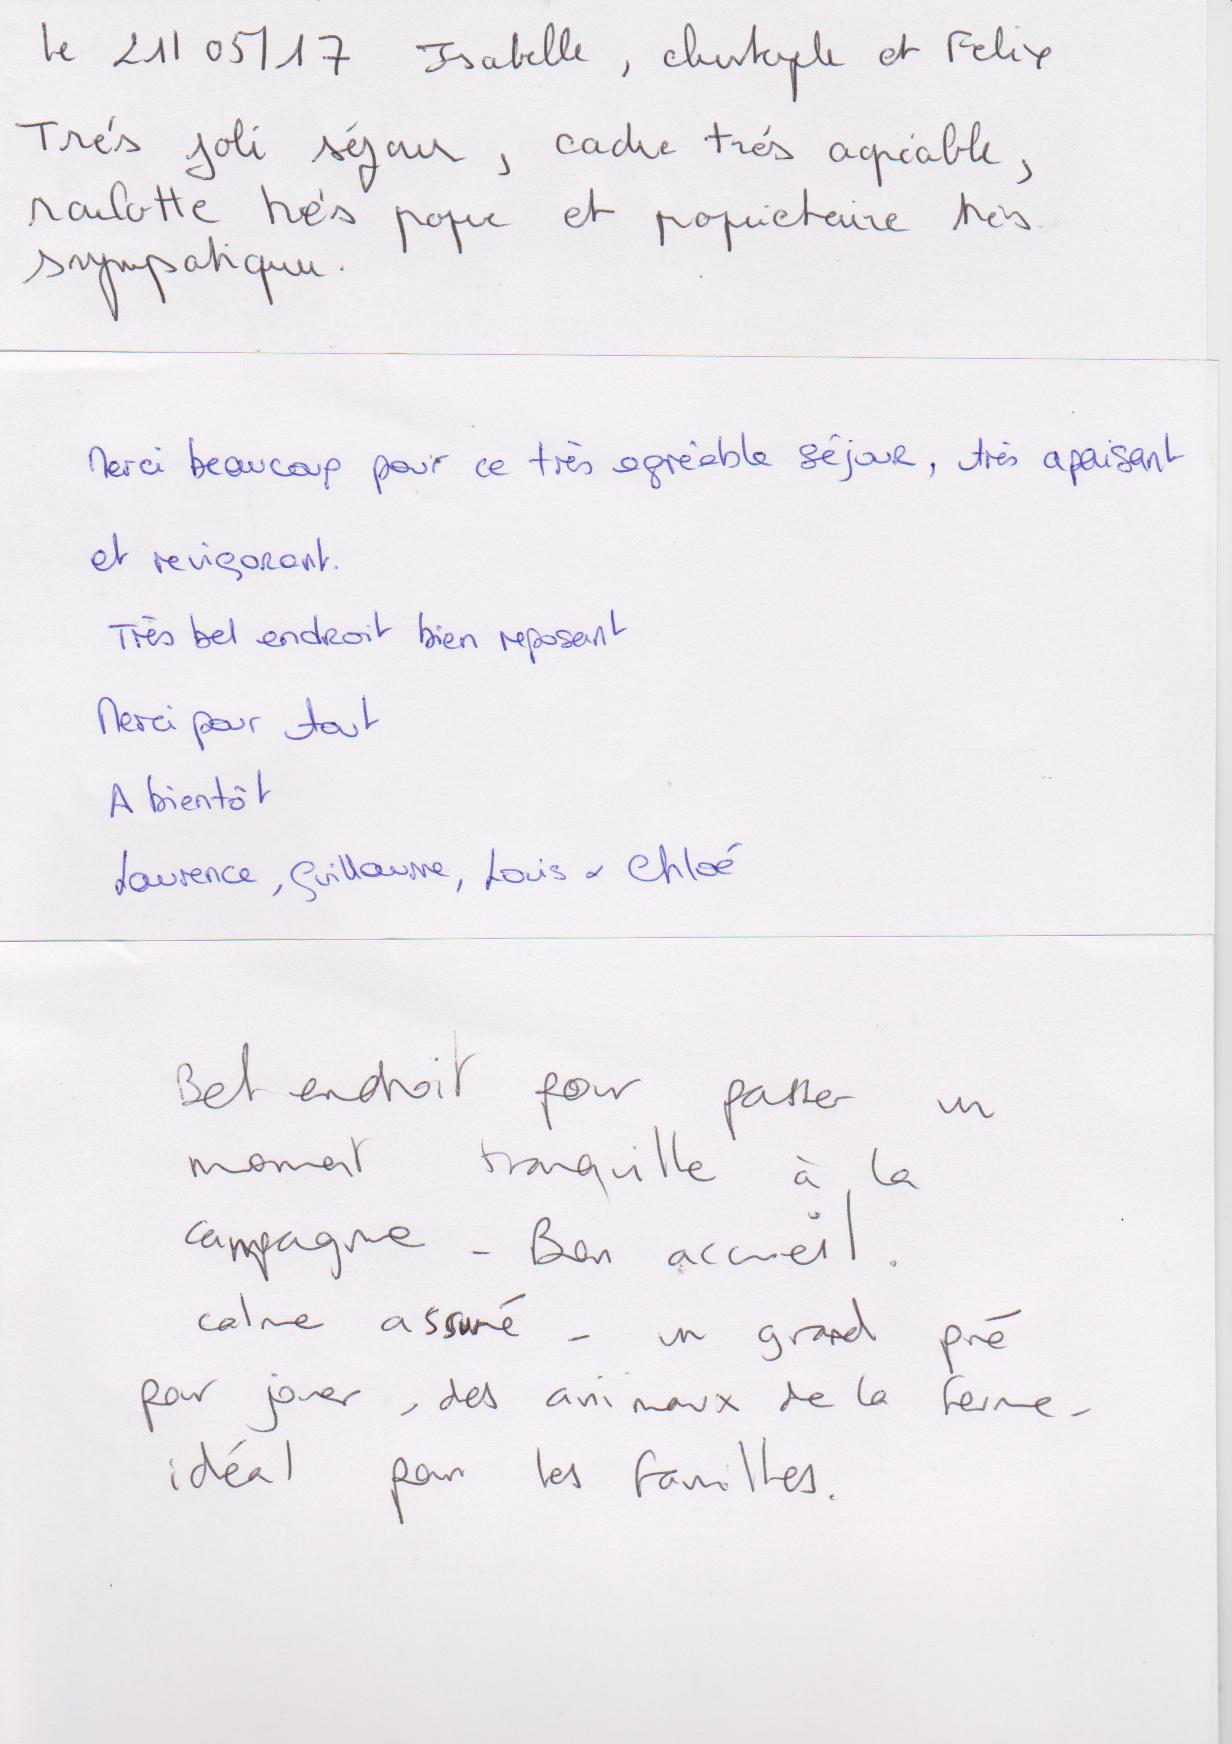 le 21/05/17 Isabelle, christophe et Felix
Trés joli séjour, cadre trés agréable,
roulotte trés propre et propriétaire très
sympatique.
Merci beaucoup pour ce très agréable séjour, très apaisant
et revigorant.
Très bel endroit bien reposant
Merci pour tout
A bientôt
Laurence, Guillaume, Louis & Chloé
Bel endroit pour passer un
moment tranquille à la
campagne - Bon accueil.
calme assuré - un grand pré
pour jouer, des animaux de la ferme -
idéal pour les familles.